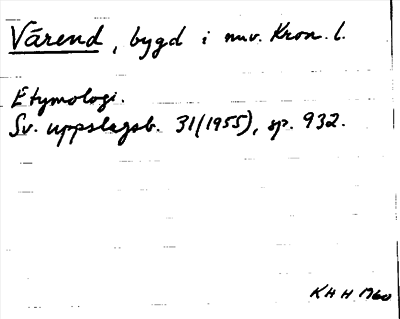 Värend, bygd i nuv. Kron. l.
Etymologi.
Sv. uppslagsb. 31(1955), sp. 932.
KHH 1960